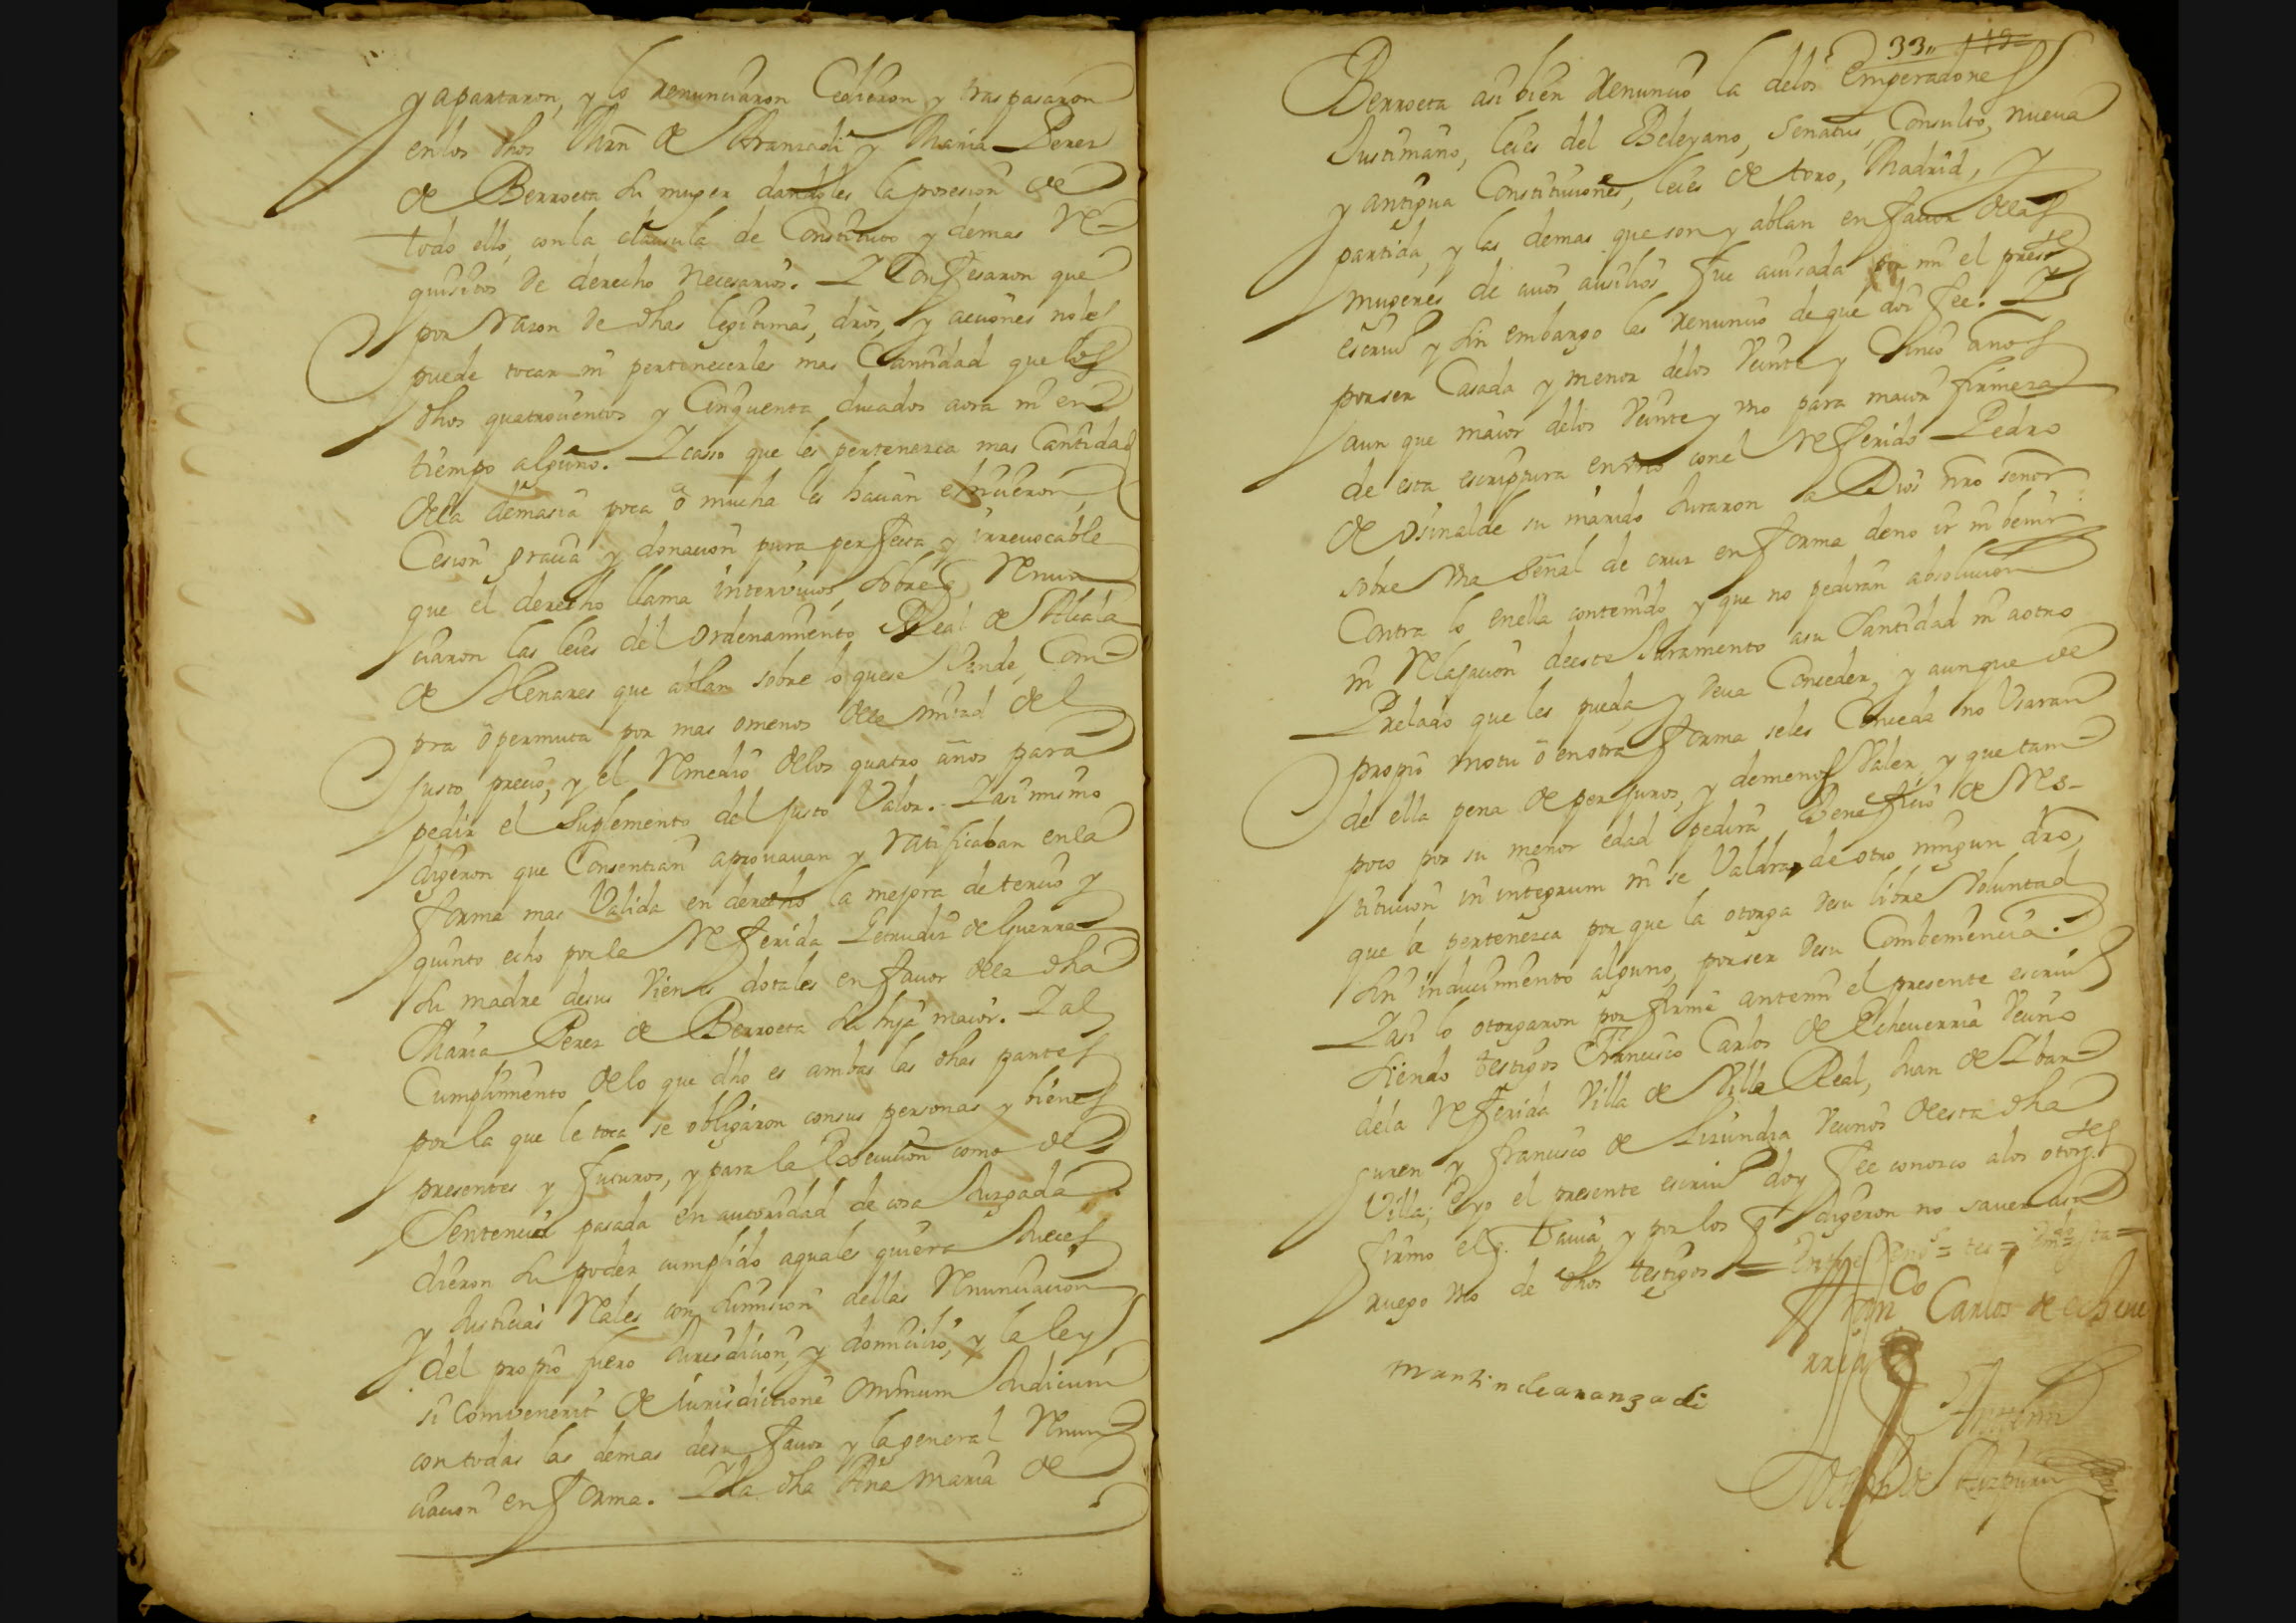 y apartaron, y lo renunciaron Cedieron y traspasaron
en los dhos Mrñ de Aranzadi y Maria Perez
de Berroeta su muger dandoles la posesion de
todo ello, con la clausula de Constituto y demas Re-
quisitos de derecho necesarios. I Confesaron que
por razon de dhas legitimas, dros, y aciones no les
puede tocar ni pertenecerles mas Cantidad que los
dhos quatrocientos y Cinquenta ducados aora ni en
tiempo alguno. I casso que les pertenezca mas Cantidad
de la demasia poca ô mucha les hacian e hicieron
Cesion gracia y donacion pura perfecta y irrevocable
que el derecho llama intervivos sobre q Renun
ciaron las leies del ordenamiento Real de Alcala
de Henares que ablan sobre lo que se Vende, Com-
pra ô permuta por mas o menos de la mitad del
justo precio, y el Remedio de los quatro años para
pedir el suplemento del justo Valor. I asi mismo
digeron que Consentian aprovavan y ratificaban en la
forma mas Valida en derecho la mejora de tercio y
quinto echo por la Referida Petrudis de Guerra
su madre de sus Vienes dotales en favor de la dha
Maria Perez de Berroeta su hija maior. I al
Cumplimento de lo que dho es ambas las dhas partes
por la que le toca se obligaron con sus personas y bienes
presentes y futuros, y para la Execucion como de
Sentencia pasada en autoridad de cosa Juzgada
dieron su poder cumplido a quales quiera Jueces
y Justicias Reales con sumision dellas Renunciacion
del propio fuero Jurisdicion, y domicilio, y la ley
si Convenerit de iurisdictione omnium Judicum
con todas las demas de su favor y la general Renun
ciacion en forma. I la dha Ana Maria de
33,, 119
Berroeta asi bien Renuncio la delos Emperadores
Justiniano, leies del Beleyano, Senatus, Consulto, nueva
y antigua Constituciones, leies de toro, Madrid, y
partida, y las demas que son y ablan en favor de las
mugeres de cuos ausilios fue auisada por mi el preste
escriuº y sin embargo las Renuncio de que doi fee. I
por ser Casada y menor delos Veinte y Cinco anos
aun que maior delos Veinte y uno para maior firmeza
de esta escriptura en uno con el Referido Pedro
de Osinalde su marido Juraron a Dios nro señor
sobre Vna Señal de cruz en forma de no ir ni benir
Contra lo en ella contenido y que no pediran absolucion
ni Relajacion de este Juramento a su Santidad ni a otro
Prelado que les pueda y deua Conceder, y aunque de
propio motu ô en otra forma se les Conceda no Vsaran
de ella pena de perjuros, y de menos Valer, y que tam-
poco por su menor edad pedira Beneficio de Res-
titucion in integrum ni se Valdra de otro ningun dro,
que le pertenezca por que la otorga de su libre Voluntad
sin inducimiento alguno, por ser de su Combeniencia.
I asi lo otorgaron por firme ante mi el presente escriuº
siendo testigos Francisco Carlos de Echeverria Vecino
de la Referida Villa de Villa Real, Juan de Ibar-
guren y Francisco de Lizundia Vecinos de esta dha
Villa; E yo el presente escriuº doy fee conozco a los otorgtes
firmo el q. sauia, y por los q digeron no sauer a su
ruego Vno de dhos testigos
Franco Carlos de echeue
rria
Martin de aranzadi
Ante mi